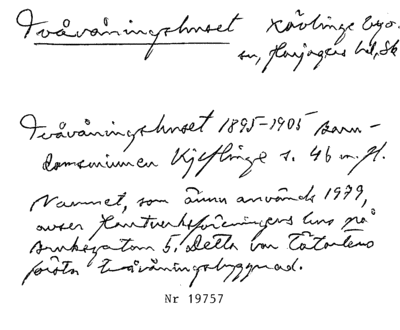 Tvåvåningshuset Kävlinge byo.
sn, Harjagers hd, Sk
Tvåvåningshuset 1895-1905 Barn-
domsminnen Kjeflinge s. 46 m.fl.
Namnet, som ännu används 1979,
avser Hantverksföreningens hus på
Bruksgatan 5. Detta var tätortens
första tvåvåningsbyggnad.
Nr 19757